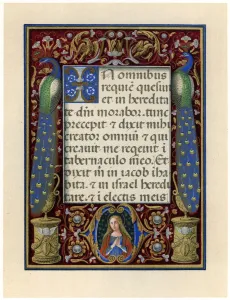 In omnibus
requiē quesiui
et in heredita
te dñi morabor. tunc
precepit & dixit mihi
creator omniū & qui
creauit me reqeuit i
tabernaculo meo. Et
dixit m̄ in iacob iha
bita. & in israel heredi
tare. & i electis meis